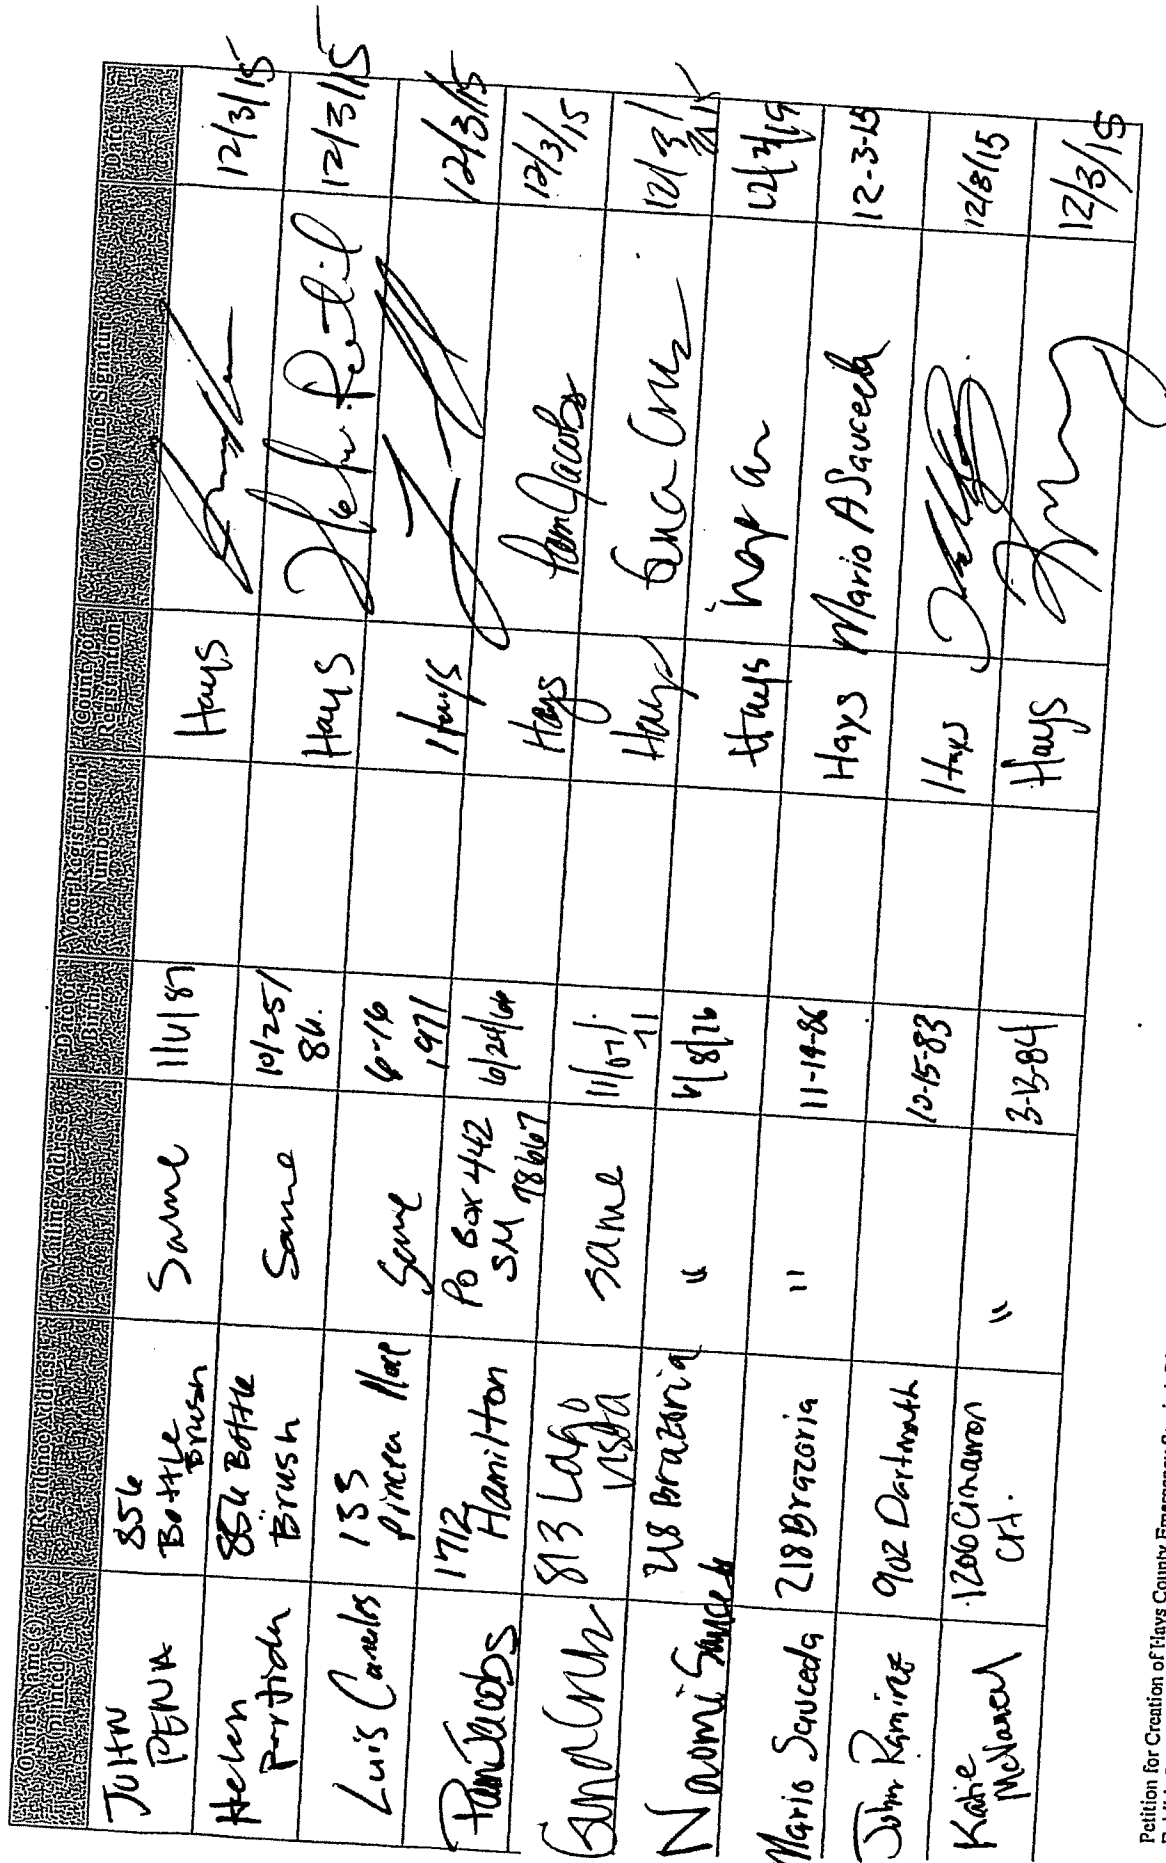 Owner Name(s) (Printed) Residence Address Mailing Address Date of Birth Voter Registration Number County of Registration Owner Signature Date
JOHN PENA 856 Bottle Brush Same Hays 12/3/15
Helen Partida 856 Bottle Brush Same 10/25/86. Hays 12/3/15
Luis 133 Same 6-16 1971 Hays 12/3/15
Pam Jacobs 1712 Hamilton PO Box 442 SM 78667 6/24/66 Hays Pam Jacobs 12/3/15
813 Lago Vista same 11/07/71 Hays 12/3/15
Naomi Sauceda 218 Brazoria " Hays
Mario Sauceda 218 Brazoria " 11-19-86 Hays Mario A Sauceda 12-3-15
John Ramirez 902 Dartmouth 10-15-83 Hays
Katie 1206 Cinnamon Crt. " 3-13-84 Hays 12/3/15
Petition for Creation of Hays County Emergency